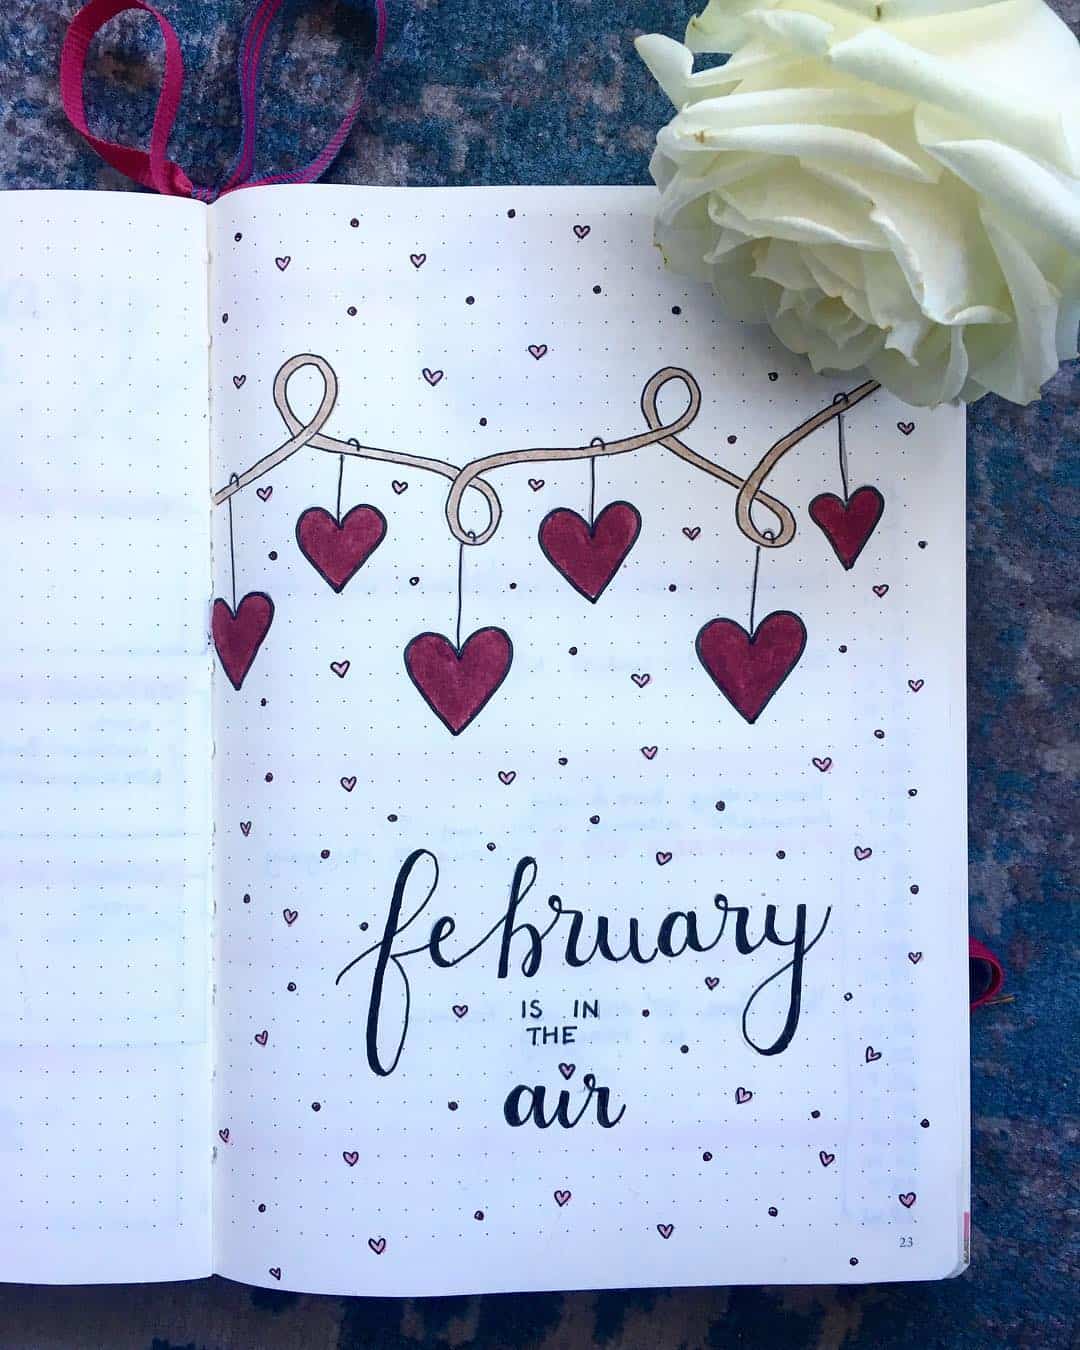 february
IS IN
THE
air
23